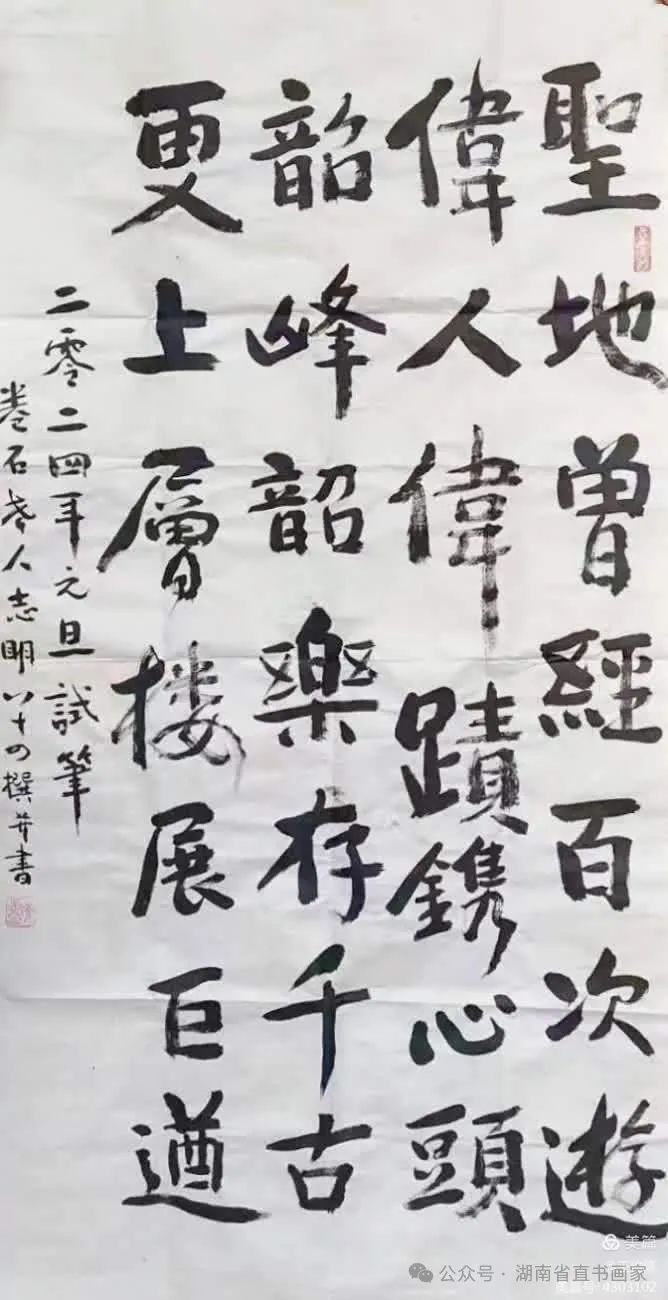 聖地曾經百次遊
偉人偉蹟鐫心頭
韶峰韶樂存千古
更上層楼展巨遒
二零二四年元旦試筆
卷石老人志明八十四撰并書
美篇
公众号 · 湖南省直书画家
4303102